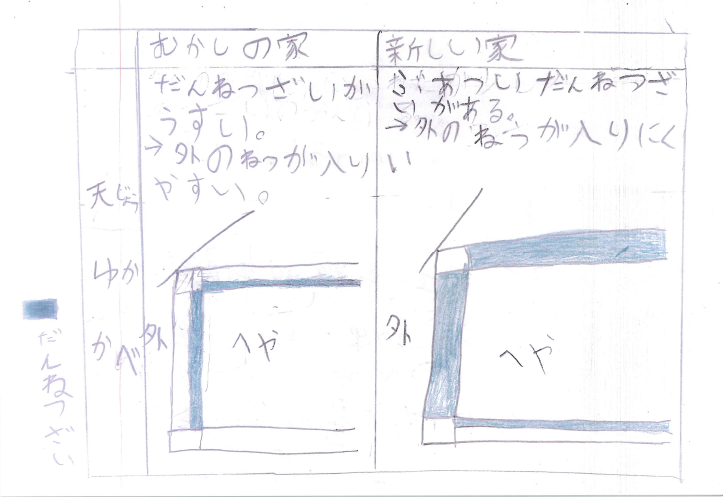 むかしの家
新しい家
だんねつざいが
うすい。
→外のねつが入り
やすい。
あつい だんねつざ
いがある。
→外のねつが入りにく
い
天じょう
ゆか
かべ
外
へや
外
へや
だんねつざい